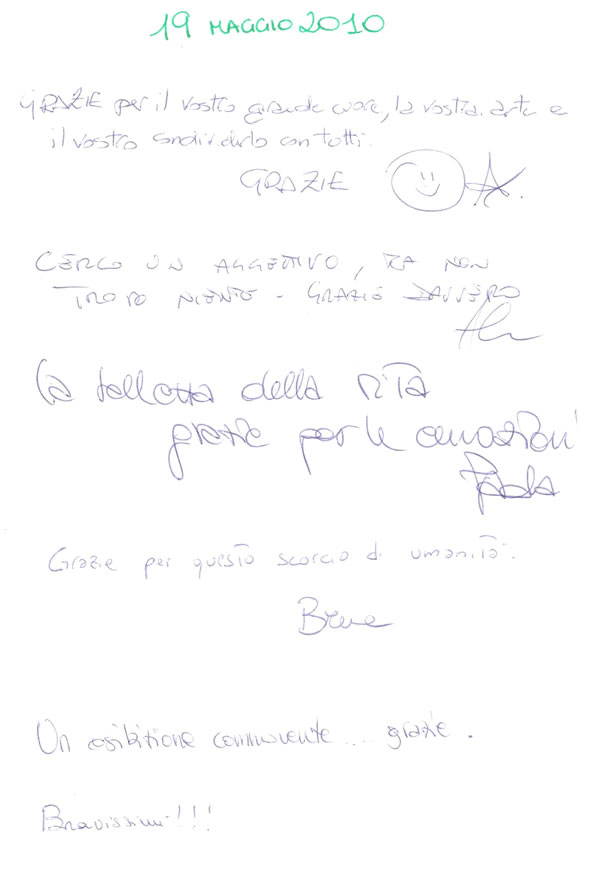 19 MAGGIO 2010
GRAZIE per il vostro grande cuore, la vostra arte e
il vostro condividerlo con tutti.
GRAZIE
CERCO UN AGGETTIVO, MA NON
TROVO NIENTE - GRAZIE DAVVERO
La della vita
grazie per le emozioni
Paola
Grazie per questo scorcio di umanità.
Un esibitione commuvente ... grazie.
Bravissimi!!!